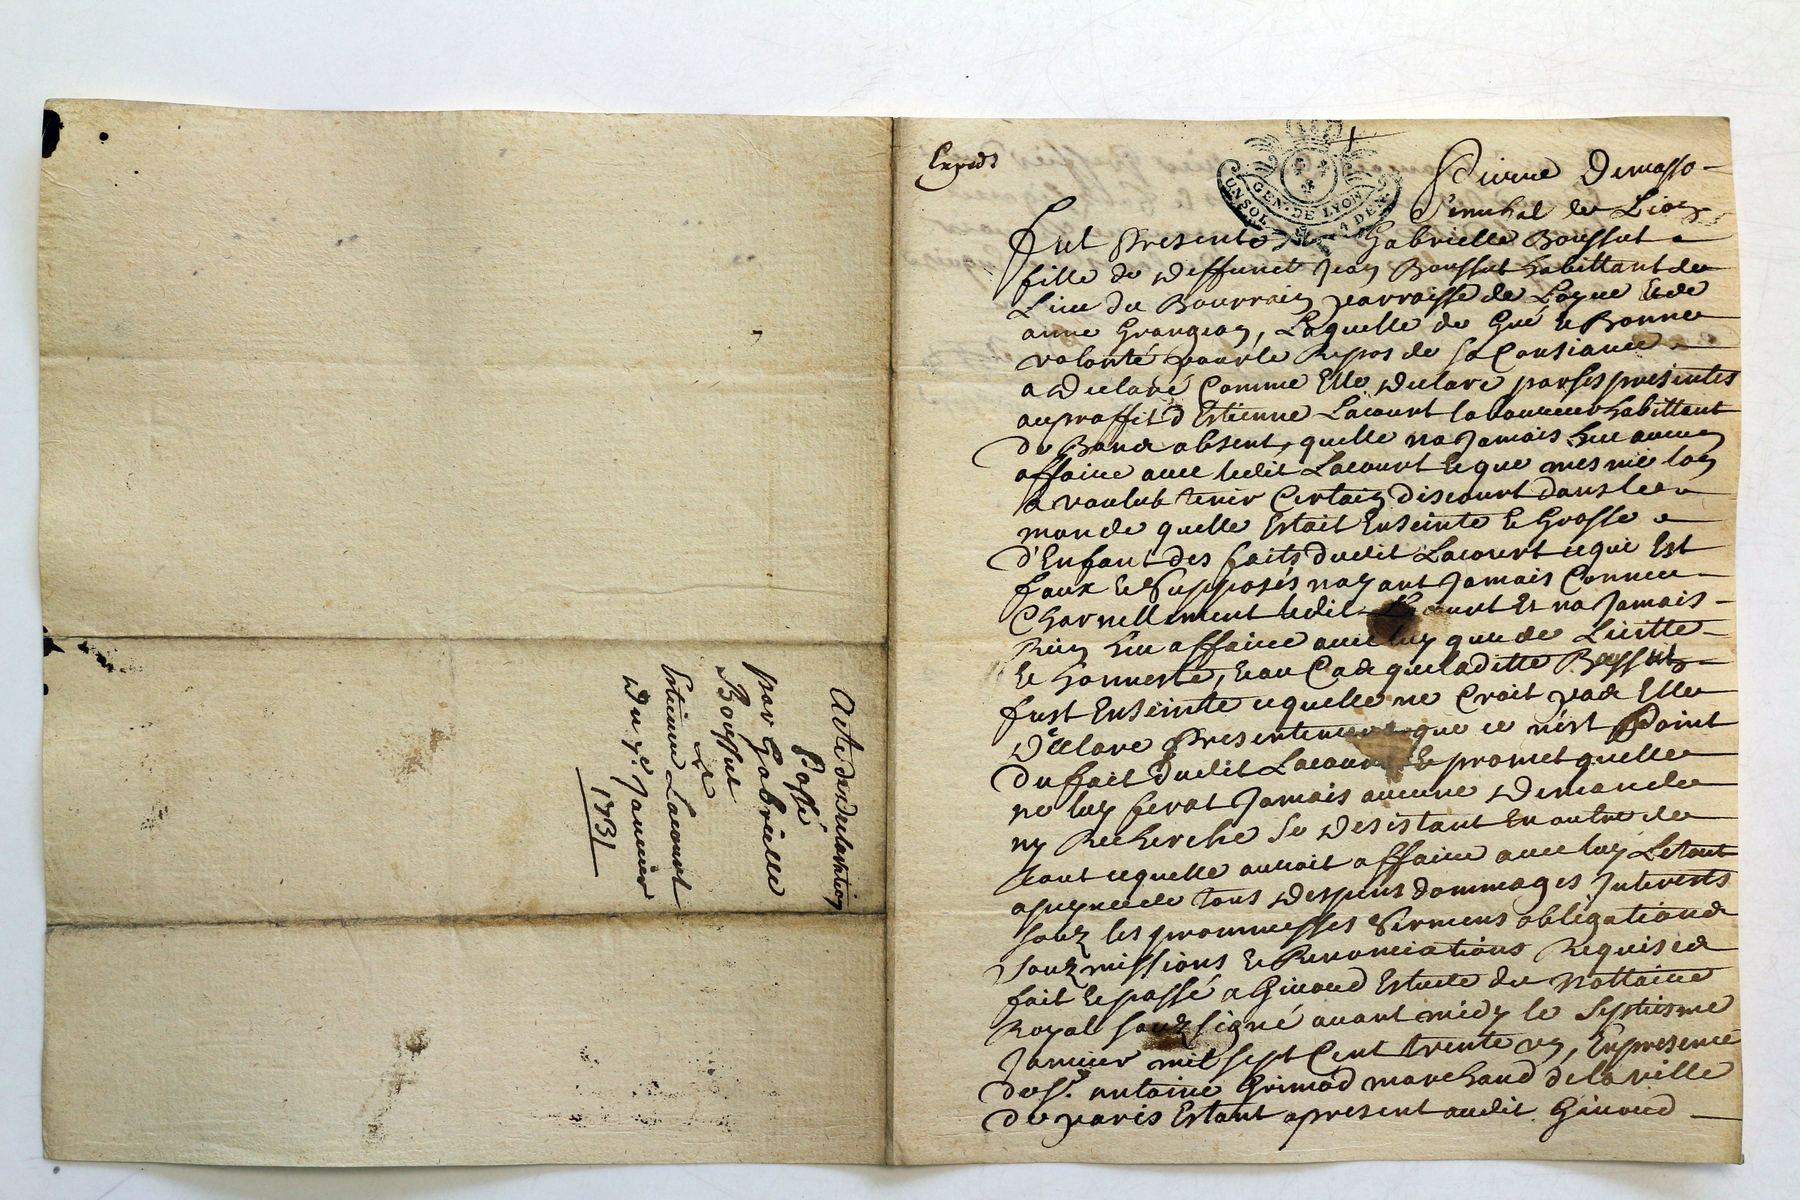 Acte de declaration
Passé
par Gabrielle
Boussut
et
Estienne Lacourt
Du 7e. Janvier
1731
Expedt
GEN. DE LYON
UN SOL 4 DEN.
Pierre Demasso
Senechal de Lion
fut Presente Gabrielle Boussut
fille de deffunct Jean Boussut habittant du
Lieu du Bourrain parroisse de Et de
anne Grangeon, Laquelle de Gré et Bonne
volonté pour le Repos de sa Consiance
a declaré Comme Elle declare par ses presentes
au proffit d'Estienne Lacourt laboureur habittant
de absent, quelle na Jamais heu aucun
affaire avec ledit Lacourt Et que mesme lon
a voulut tenir Certain discourt dans le
monde quelle Estoit Enseinte et Grosse
d'Enfant des faits dudit Lacourt ce qui Est
faux et Supposés nayant Jamais Conneu
Charnellement ledit Lacourt Et na Jamais
Rien heu affaire avec luy que de Licitte
et honneste, Et au Cas que laditte Boussut
fust Enseinte ce quelle ne Croit pas Elle
Declare Presentement que ce n'est Point
du fait dudit Lacourt Et promet quelle
ne luy ferat Jamais aucune Demande
ny Recherche Se desistant En outre de
tout ce quelle auroit affaire avec luy Le tout
a peyne de tous despens dommages Interests
souz les prommesses Sermens obligations
souzmissions et Renonciations Requises
fait et passé a Givord Estude du Nottaire
Royal souzsigné avant midy le Septiesme
Janvier mil sept Cent trente un, En presence
de sr. antoine Grimod marchand de la ville
de paris Estant a present audit Givord